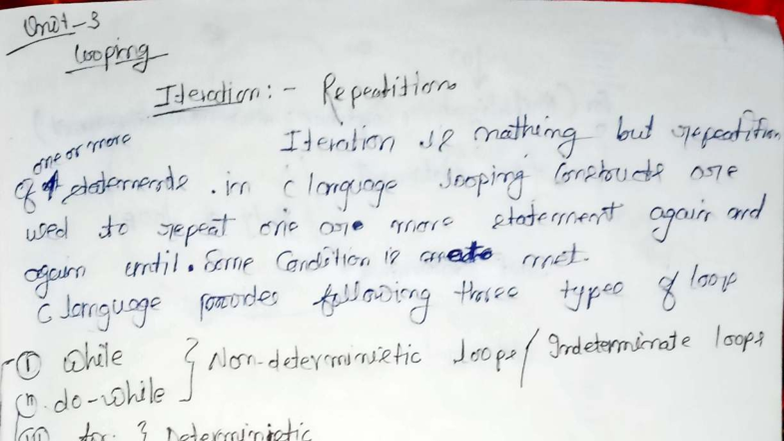 Unit-3
Looping
Iteration:- Repeatition
Iteration is nathing but repeatition
one or more
of statements. in C language looping Constructs are
used to repeat one are more statement again and
again until. Some Condition is met.
C language provides following three types of loop
(i) while } Non-deterministic loops/ Indeterminate loops
(ii) do-while
(iii) for } Deterministic